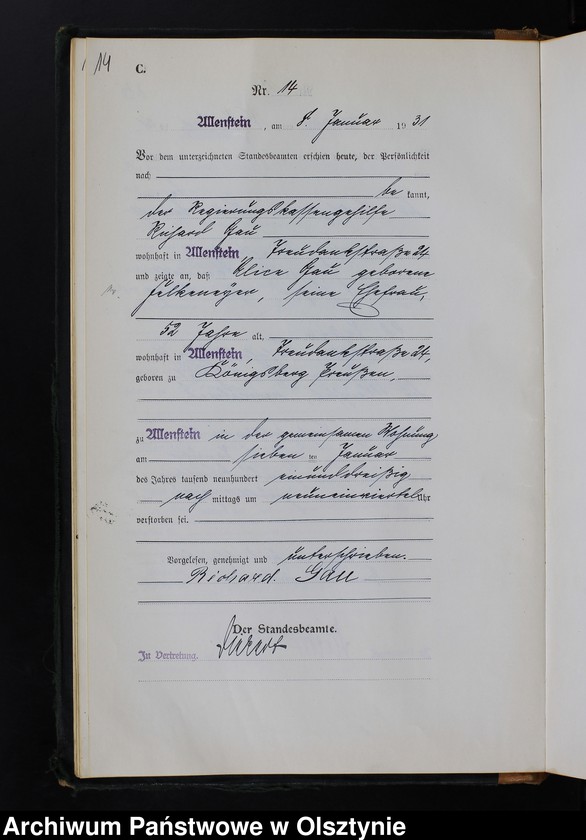 14
C.
Nr. 14
Allenstein, am 8. Januar 1931
Vor dem unterzeichneten Standesbeamten erschien heute, der Persönlichkeit
nach
bekannt,
der Regierungskassengehilfe
Richard Gau
wohnhaft in Allenstein, Treudankstraße 24
und zeigte an, daß Alice Gau geborene
seine Ehefrau,
52 Jahre alt,
wohnhaft in Allenstein, Treudankstraße 24,
geboren zu Königsberg Preußen,
zu Allenstein in der gemeinsamen Wohnung
am sieben ten Januar
des Jahres tausend neunhundert einunddreißig
nach mittags um neuneinviertel Uhr
verstorben sei.
Vorgelesen, genehmigt und unterschrieben.
Richard Gau
Der Standesbeamte.
In Vertretung.
Archiwum Państwowe w Olsztynie